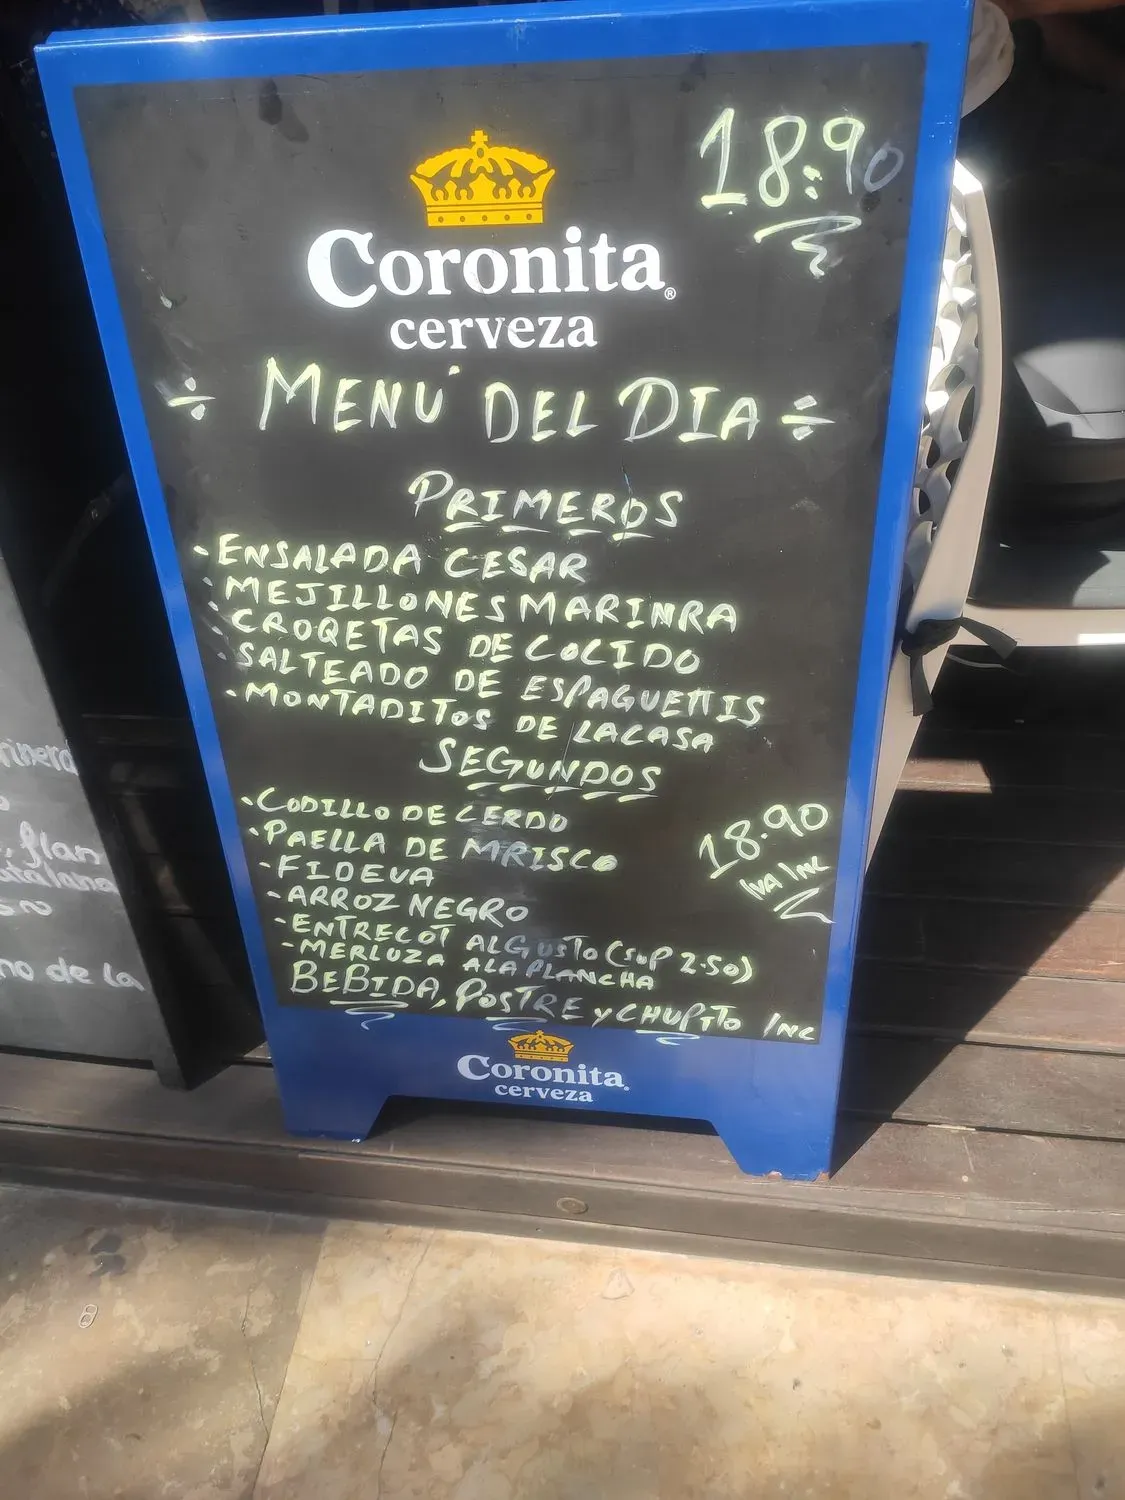 18.90
Coronita
cerveza
MENÚ DEL DIA
PRIMEROS
- ENSALADA CESAR
- MEJILLONES MARINRA
- CROQETAS DE COCIDO
- SALTEADO DE ESPAGUETTIS
- MONTADITOS DE LACASA
SEGUNDOS
- CODILLO DE CERDO
- PAELLA DE MRISCO
- FIDEUA
- ARROZ NEGRO
- ENTRECOT AL GUSTO (SUP 2.50)
- MERLUZA A LA PLANCHA
18.90
IVA INC
BEBIDA, POSTRE y CHUPITO INC
Coronita
cerveza
flan
no de la